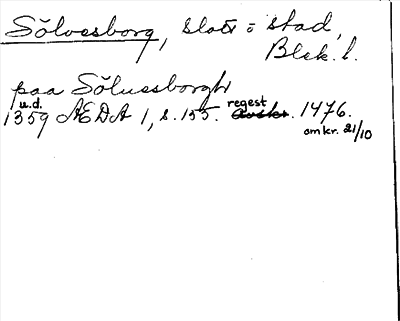 Sölvesborg, slott o stad,
Blek. l.
paa Söluessborgh
u.d.
1359 AEDA 1, s. 155. regest 1476.
omkr. 21/10